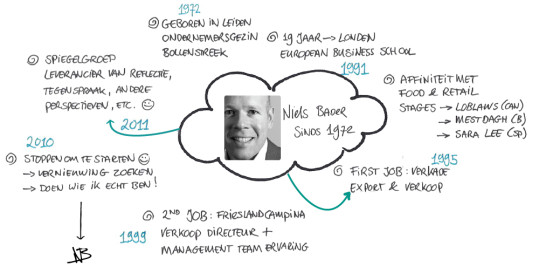 1972
GEBOREN IN LEIDEN
ONDERNEMERSGEZIN
BOLLENSTREEK
19 JAAR → LONDEN
EUROPEAN BUSINESS SCHOOL
1991
AFFINITEIT MET
FOOD & RETAIL
STAGES → LOBLAWS (CAN)
→ MESTDAGH (B)
→ SARA LEE (SP)
1995
FIRST JOB: VERKADE
EXPORT & VERKOOP
2ND JOB: FRIESLANDCAMPINA
VERKOOP DIRECTEUR +
MANAGEMENT TEAM ERVARING
1999
2010
STOPPEN OM TE STARTEN ☺
→ VERNIEUWING ZOEKEN
→ DOEN WIE IK ECHT BEN!
NB
SPIEGELGROEP
LEVERANCIER VAN REFLECTIE,
TEGENSPRAAK, ANDERE
PERSPECTIEVEN, ETC. ☺
2011
NIELS BAUER
SINDS 1972